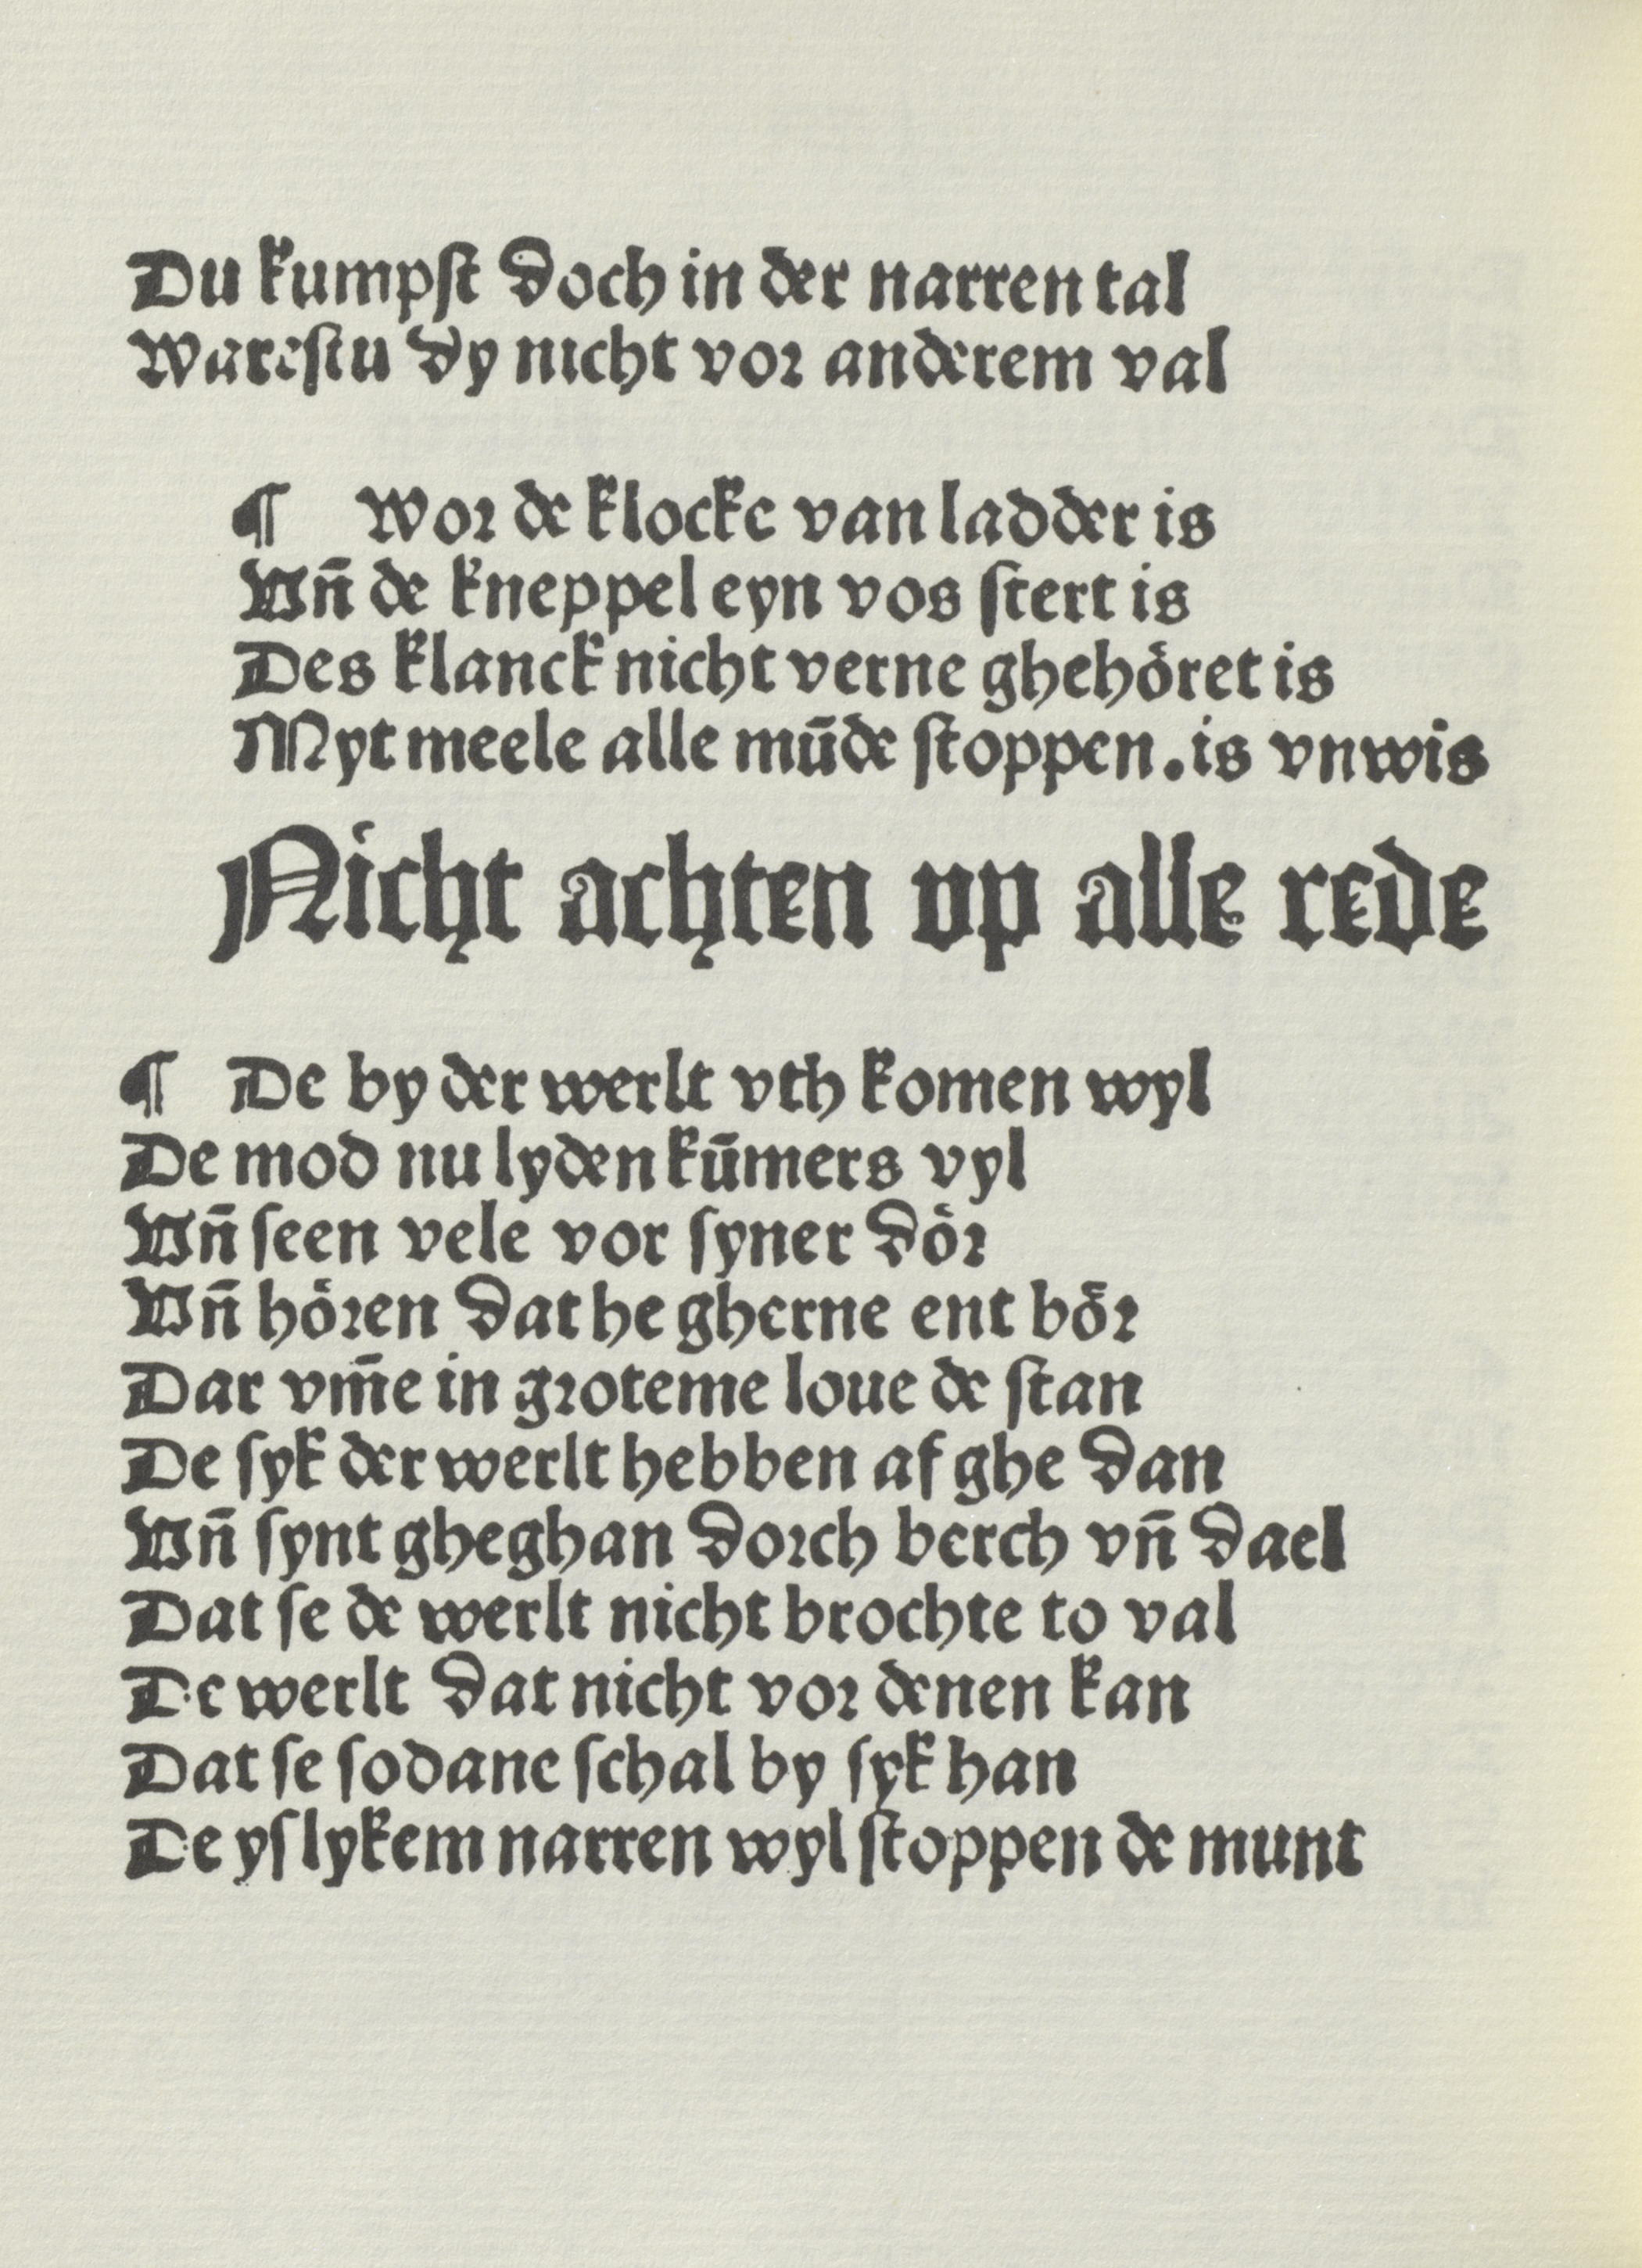 Du kumpſt doch in der narren tal
Wareſtu dy nicht vor anderem val
¶ Wor de klocke van ladder is
Vn̄ de kneppel eyn vos ſtert is
Des klanck nicht verne ghehöret is
Myt meele alle mūde ſtoppen. is vnwis
Nicht achten vp alle rede
¶ De by der werlt vth komen wyl
De mod nu lyden kūmers vyl
Vn̄ ſeen vele vor ſyner dör
Vn̄ hören dat he gherne ent bör
Dar vm̄e in groteme loue de ſtan
De ſyk der werlt hebben af ghe dan
Vn̄ ſynt gheghan dorch berch vn̄ dael
Dat ſe de werlt nicht brochte to val
De werlt dat nicht vor denen kan
Dat ſe ſodane ſchal by ſyk han
De yſlykem narren wyl ſtoppen de munt